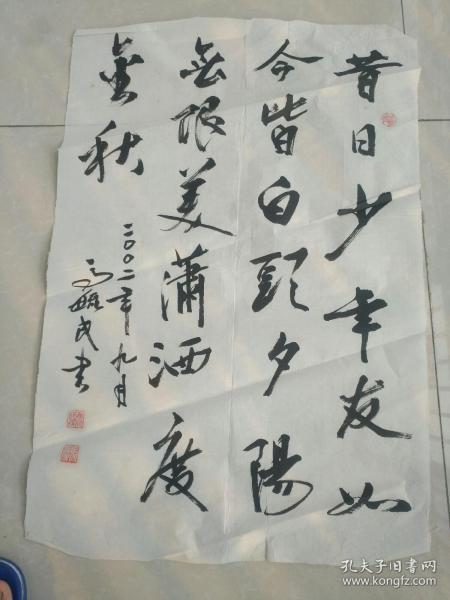 昔日少年友如
今皆白頭夕陽
無限美瀟洒度
金秋
二〇〇二年九月
民書
孔夫子旧书网
www.kongfz.com